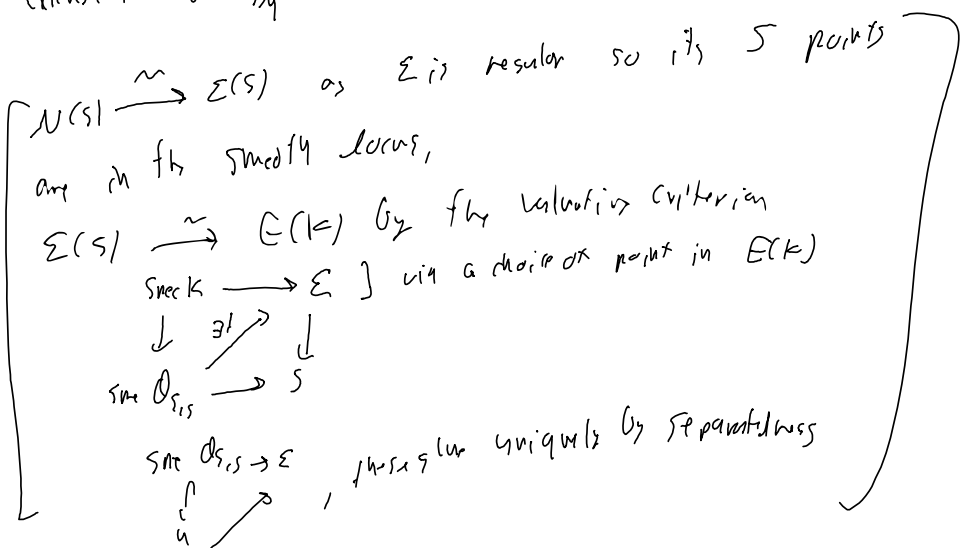 N(S) ⥲ Ɛ(S) as Ɛ is regular so it's S points
are in the smooth locus,
Ɛ(S) ⥲ E(K) by the valuative criterion
Spec K → Ɛ ] via a choice of point in E(K)
↓ ∃! ↗ ↓
Spec O_{S,s} → S
Spec O_{S,s} → Ɛ
, these glue uniquely by separatedness
U ↗